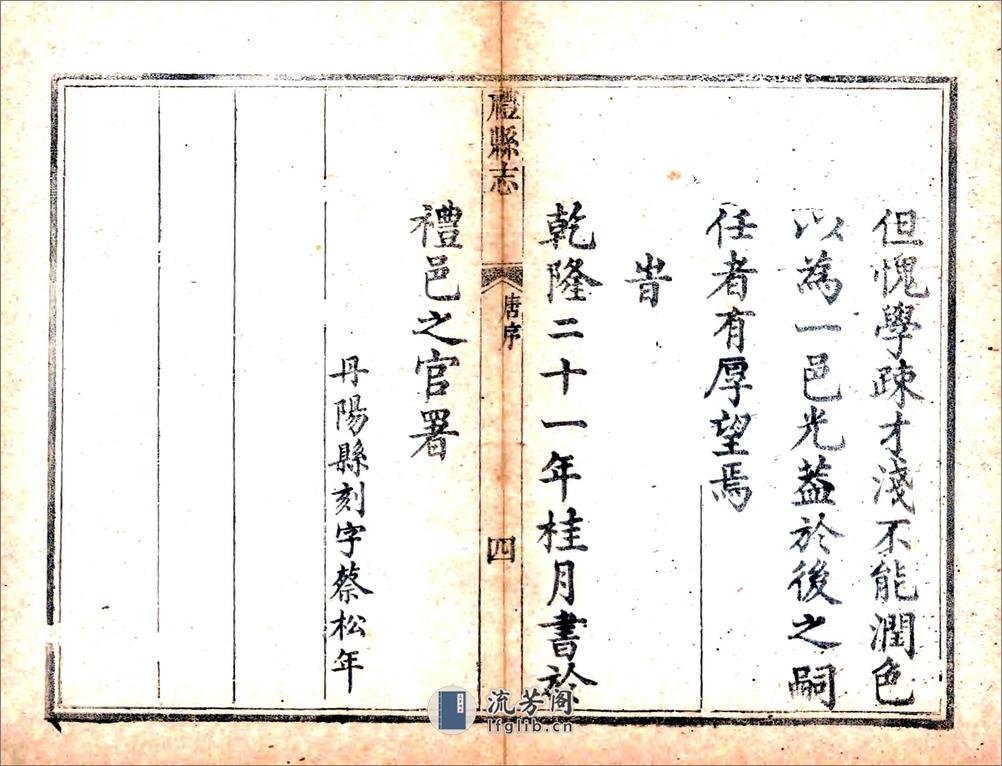 但愧學疎才淺不能潤色
以為一邑光葢於後之嗣
任者有厚望焉
旹
乾隆二十一年桂月書於
禮縣志
唐序
四
禮邑之官署
丹陽縣刻字蔡松年
流芳阁
lfglib.cn